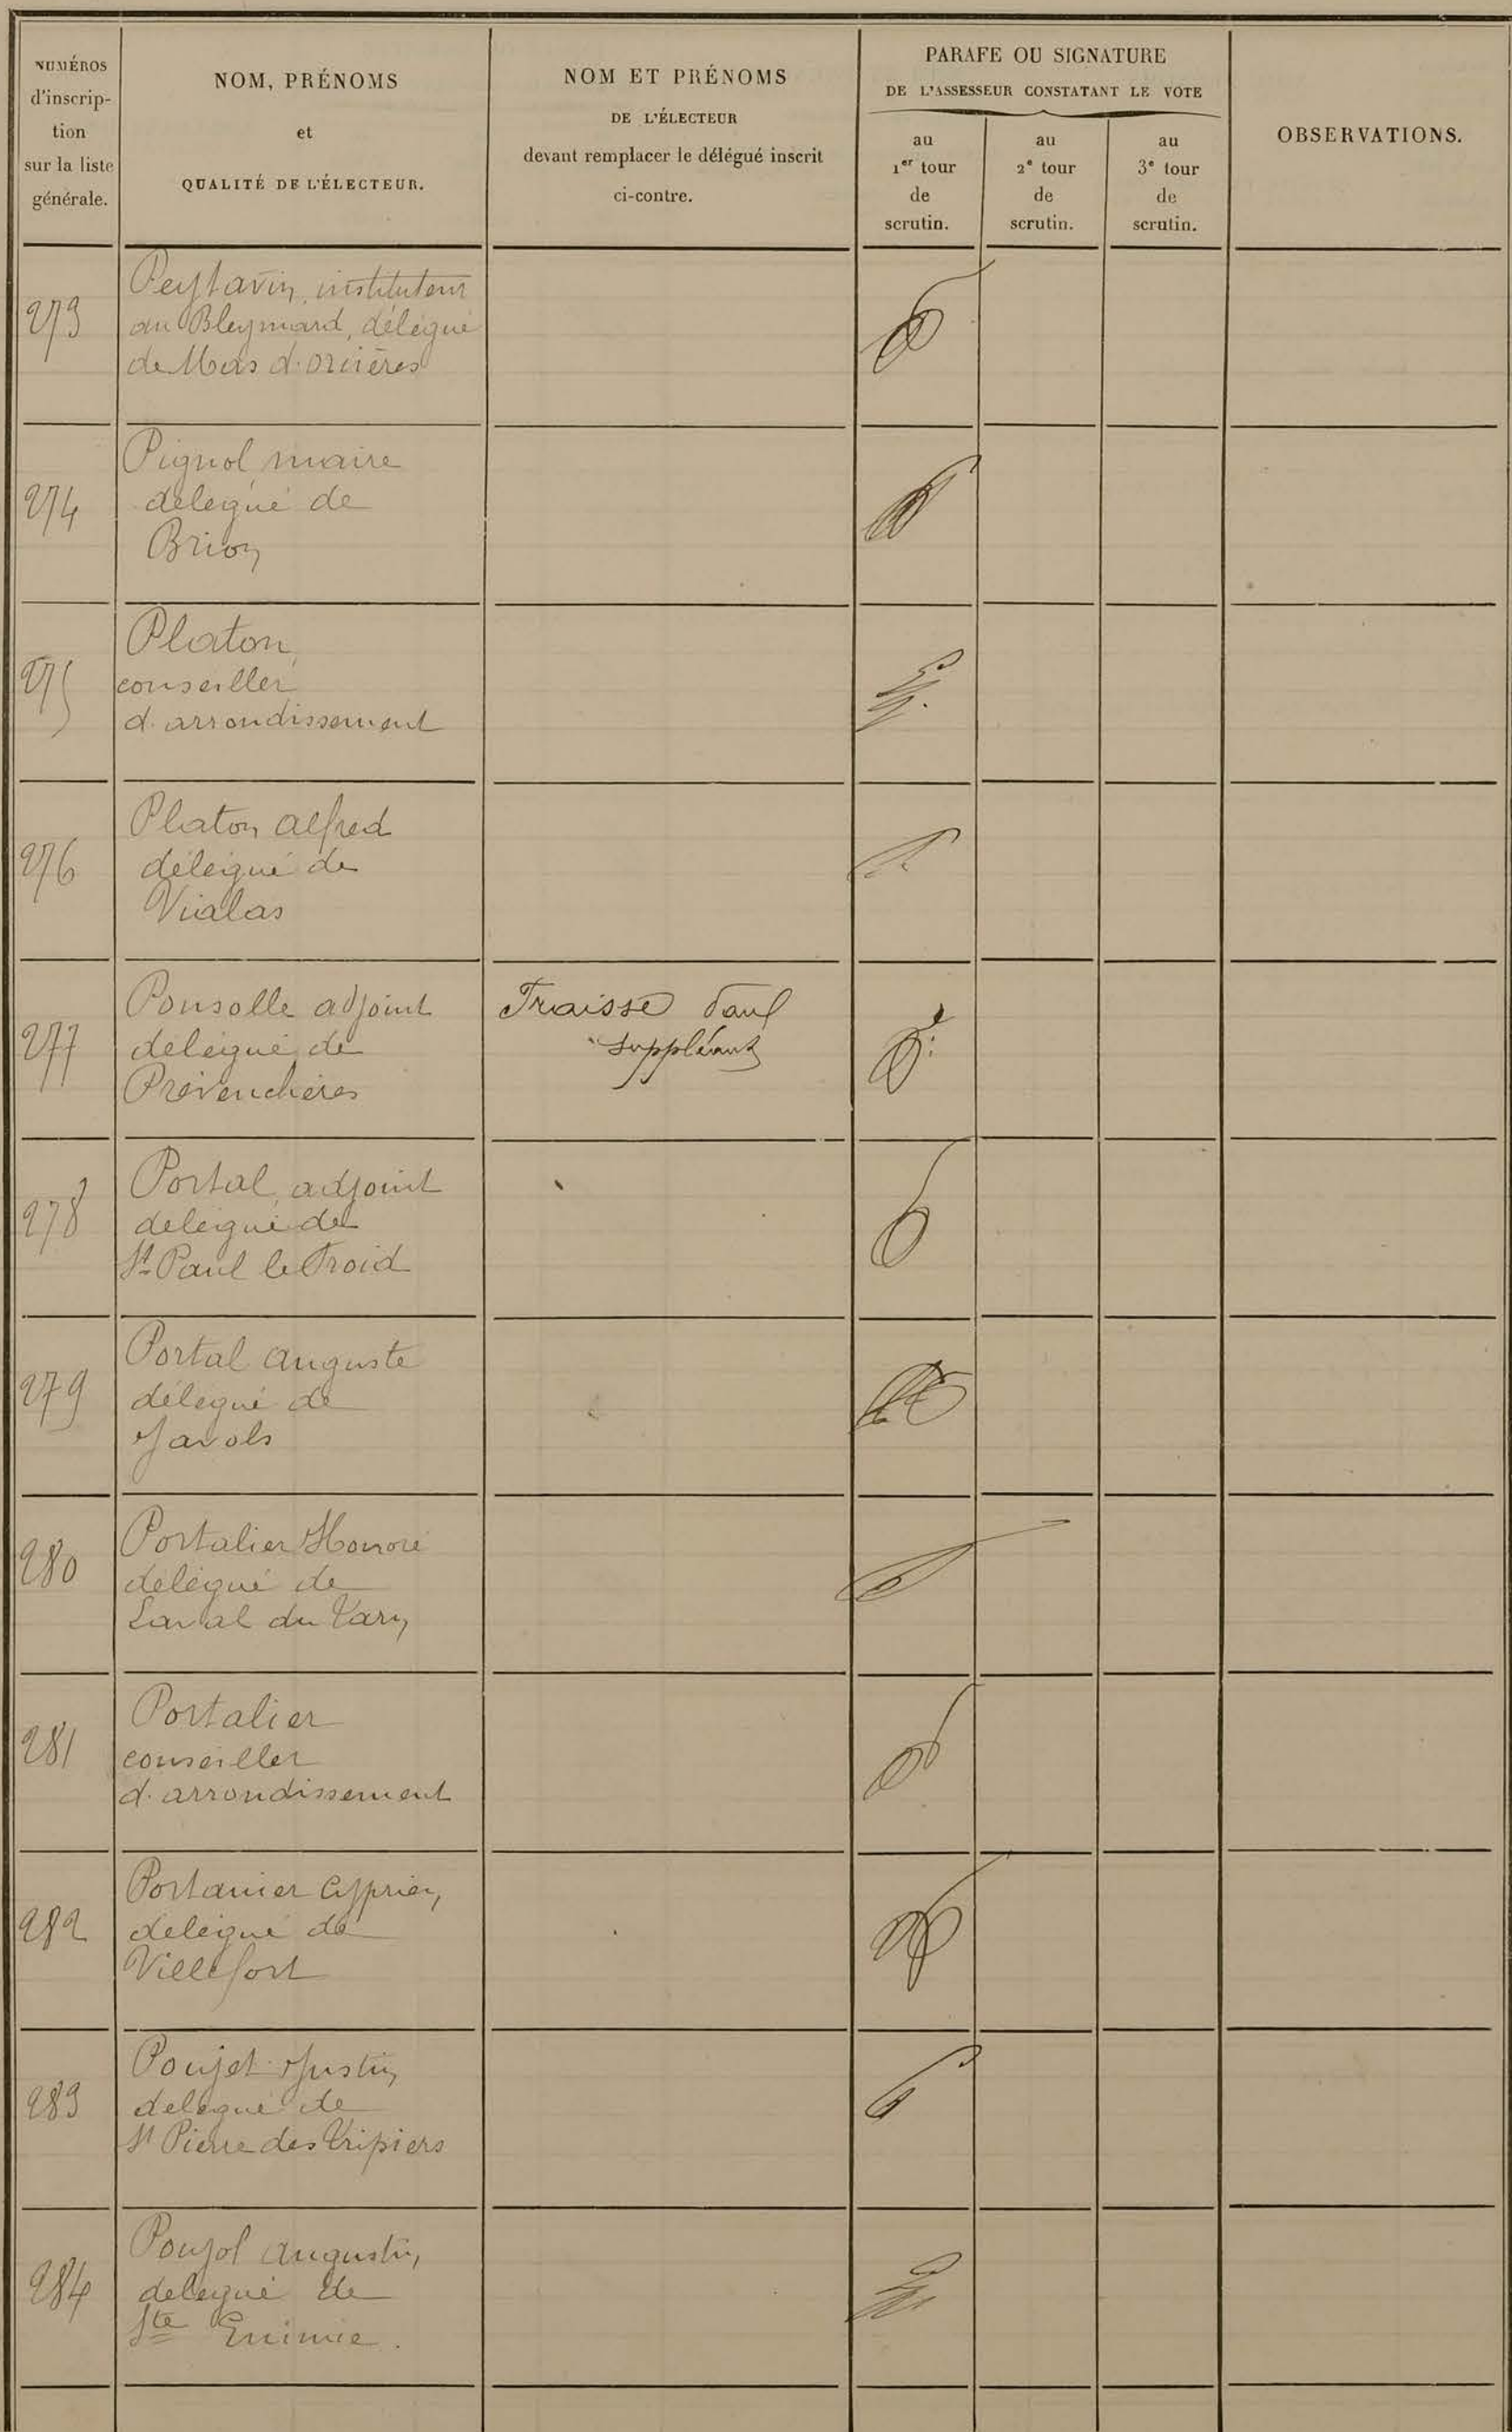 NUMÉROS
d'inscrip-
tion
sur la liste
générale.
NOM, PRÉNOMS
et
QUALITÉ DE L'ÉLECTEUR.
NOM ET PRÉNOMS
DE L'ÉLECTEUR
devant remplacer le délégué inscrit
ci-contre.
PARAFE OU SIGNATURE
DE L'ASSESSEUR CONSTATANT LE VOTE
au
1er tour
de
scrutin.
au
2e tour
de
scrutin.
au
3e tour
de
scrutin.
OBSERVATIONS.
273
Peytavin, instituteur
au Bleymard, délégué
de Mas d'orcières
274
Pignol maire
délégué de
Brion
275
Platon,
conseiller
d'arrondissement
276
Platon alfred
délégué de
Vialas
277
Ponsolle adjoint
délégué de
Prévenchères
Fraisse Paul
suppléant
278
Portal, adjoint
délégué de
St Paul le Froid
279
Portal auguste
délégué de
Javols
280
Portalier Honoré
délégué de
Laval du Tarn
281
Portalier
conseiller
d'arrondissement
282
Portanier Cyprien,
délégué de
Villefort
283
Poujet Justin,
délégué de
St Pierre des Tripiers
284
Poujol augustin,
délégué de
Ste Enimie.